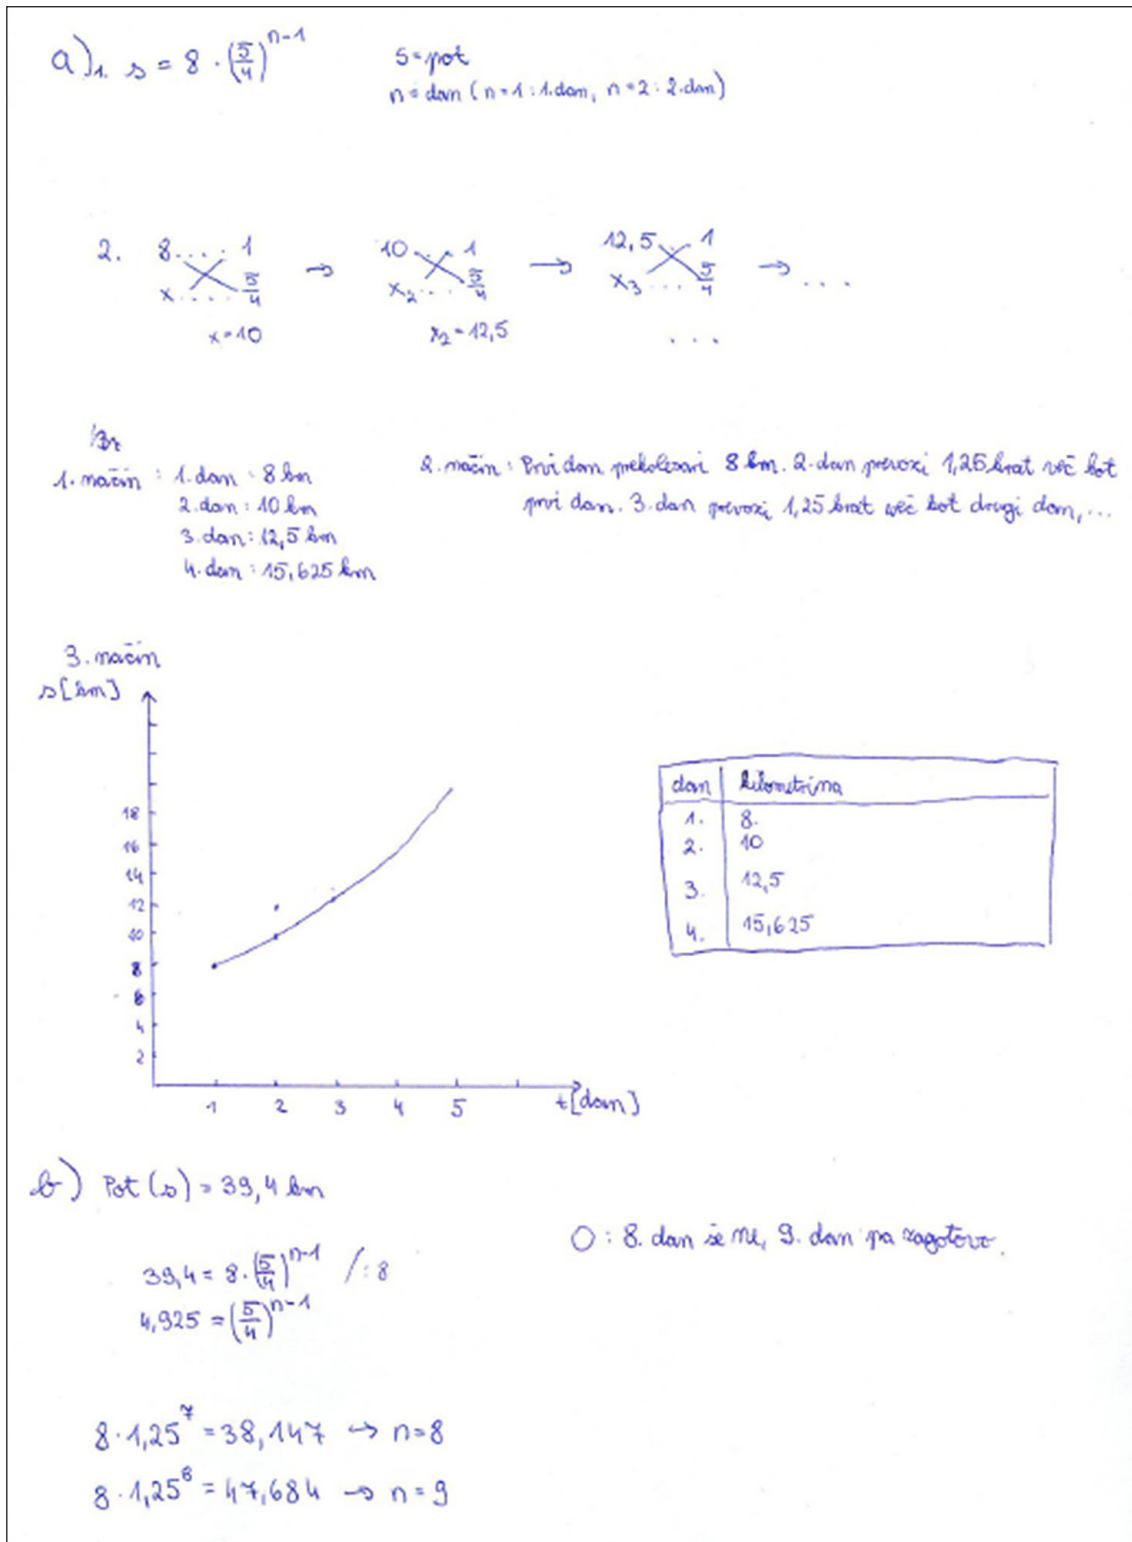 a) 1. s = 8 · (5/4)^(n-1)
s = pot
n = dan (n=1 : 1.dan, n=2 : 2.dan)
2. 8 .... 1 → 10 .... 1 → 12,5 .... 1 → ...
x .... 5/4 x₂ .... 5/4 x₃ .... 5/4
x=10 x₂=12,5 ...
1. način : 1. dan : 8 km
2. dan : 10 km
3. dan : 12,5 km
4. dan : 15,625 km
2. način : Prvi dan prekolesari 8 km. 2. dan prevozi 1,25 krat več kot
prvi dan. 3. dan prevozi 1,25 krat več kot drugi dan, ...
3. način
s[km]
18
16
14
12
10
8
6
4
2
1 2 3 4 5 t[dan]
dan kilometrina
1. 8.
2. 10
3. 12,5
4. 15,625
b) Pot (s) = 39,4 km
39,4 = 8 · (5/4)^(n-1) /:8
4,925 = (5/4)^(n-1)
O : 8. dan še ne, 9. dan pa zagotovo.
8 · 1,25^7 = 38,147 → n=8
8 · 1,25^8 = 47,684 → n=9